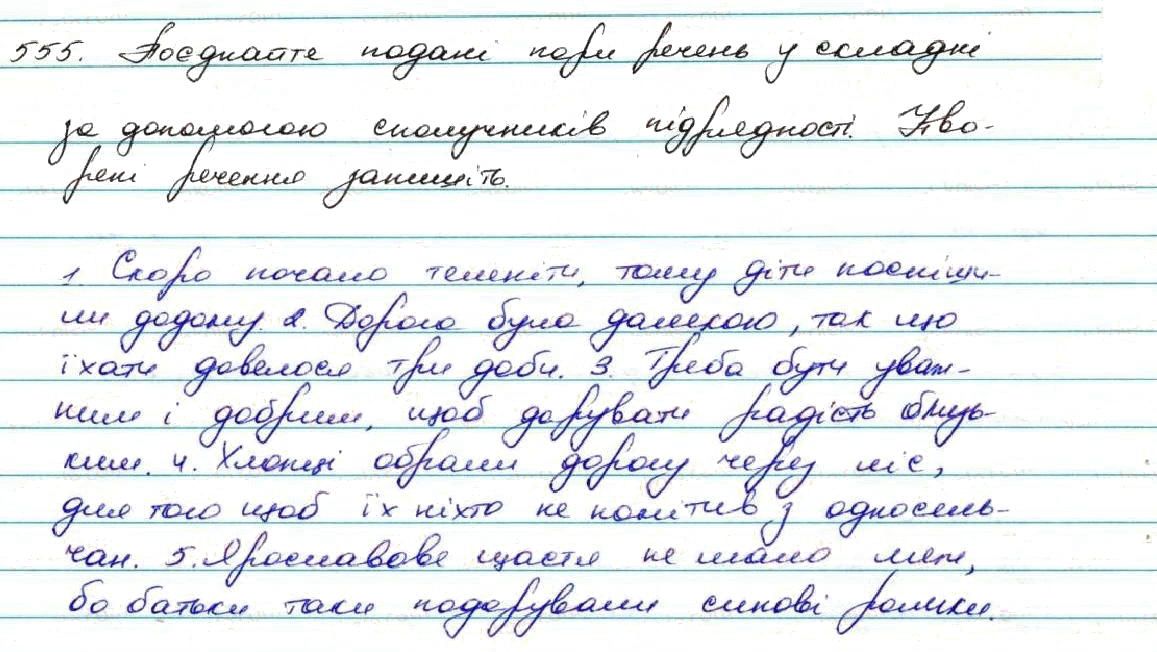 555. Поєднайте подані пари речень у складні
за допомогою сполучників підрядності. Утво-
рені речення запишіть.
1. Скоро почало темніти, тому діти поспіши-
ли додому. 2. Дорога була далекою, так що
їхати довелося три доби. 3. Треба бути уваж-
ним і добрим, щоб дарувати радість близь-
ким. 4. Хлопці обрали дорогу через ліс,
для того щоб їх ніхто не помітив з односель-
чан. 5. Ярославове щастя не мало меж,
бо батьки таки подарували синові ролики.